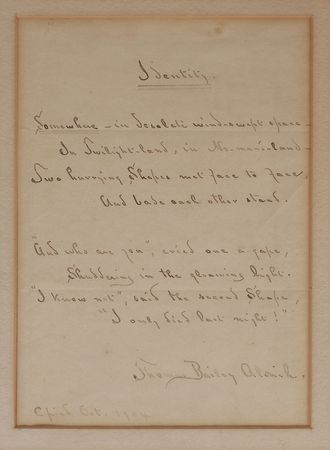 Identity.
Somewhere – in desolate wind-swept space –
In Twilight-land, in No-man's-land –
Two hurrying Shapes met face to face,
And bade each other stand.
"And who are you", cried one a-gape,
Shuddering in the gloaming light.
"I know not", said the second Shape,
"I only died last night!"
Thomas Bailey Aldrich.
Oct. 1904